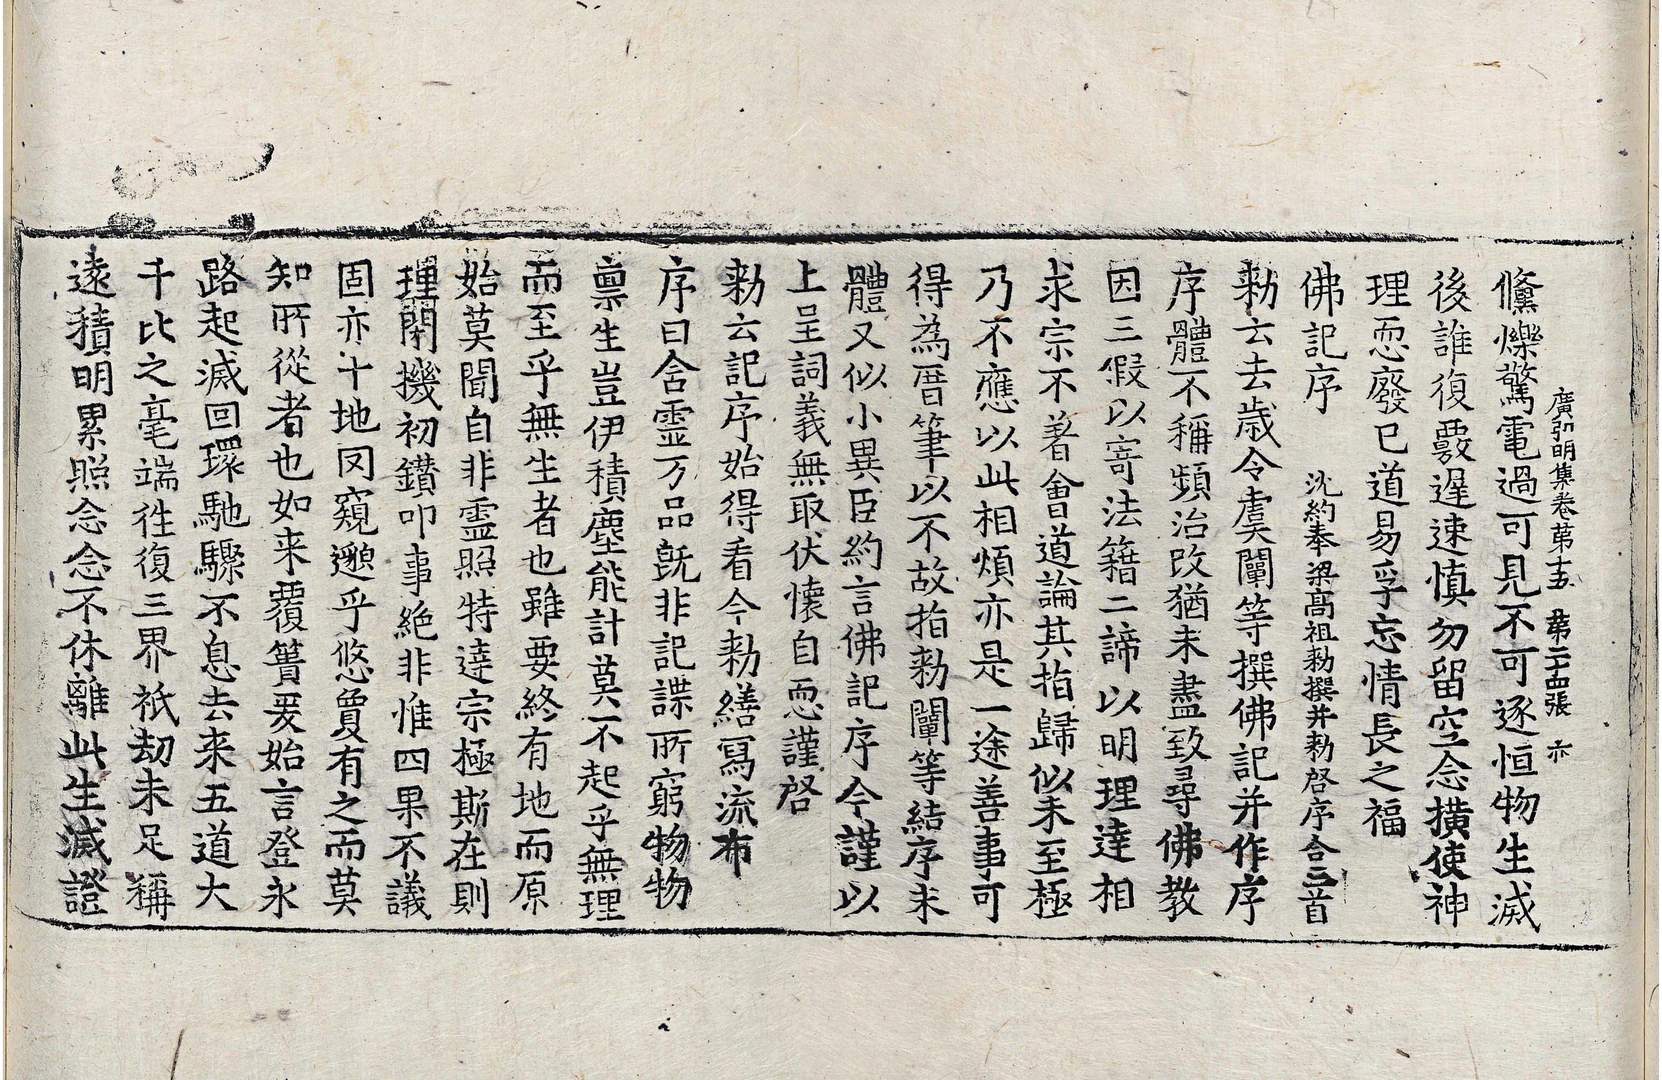 儵爍驚電過可見不可逐恒物生滅
廣弘明集卷第十五 第二十五張 亦
後誰復覈遲速慎勿留空念橫使神
理恧廢已道易孚忘情長之福
佛記序 沈約奉梁高祖勑撰并勑啓序合三首
勑云去歲令虞闡等撰佛記并作序
序體不稱頻治改猶未盡致尋佛教
因三假以寄法籍二諦以明理達相
求宗不著會道論其指歸似未至極
乃不應以此相煩亦是一途善事可
得為厝筆以不故指勑闡等結序未
體又似小異臣約言佛記序今謹以
上呈詞義無取伏懷自恧謹啓
勑云記序始得看今勑繕寫流布
序曰含靈万品旣非記諜所窮物物
禀生豈伊積塵能計莫不起乎無理
而至乎無生者也雖要終有地而原
始莫聞自非靈照特達宗極斯在則
理關機初鑚叩事絶非惟四果不議
固亦十地罔窺邈乎悠夐有之而莫
知所從者也如来覆簣爰始言登永
路起滅回環馳驟不息去来五道大
千比之毫端徃復三界祇劫未足稱
遠積明累照念念不休離此生滅證